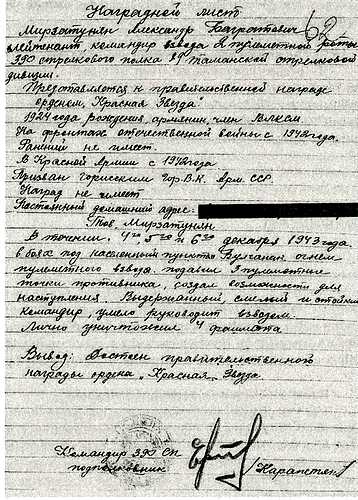 Наградной лист
Мирзатунян Александр Багратович 62
лейтенант командир взвода 2 пулеметной роты
390 стрелкового полка 89 Таманской стрелковой
дивизии.
Представляется к правительственной награде
орденом, Красная Звезда"
1924 года рождения, армянин, член ВЛКСМ
На фронтах отечественной войны с 1942 года.
Ранений не имеет.
В Красной Армии с 1942 года
Призван горисским Гор.В.К. Арм. ССР
Наград не имеет
Постоянный домашний адрес:
Тов. Мирзатунян
В течении. 4го 5го и 6го декабря 1943 года
в боях под населенный пункта Булганак огнем
пулеметного взвода. подавил 3 пулеметные
точки противника, создал возможности для
наступления. Выдержанный, смелый и стойкий
командир, умело руководит взводом.
Лично уничтожил 4 фашиста
Вывод: Достоин правительственного
награды ордена „Красная„ Звезда
Командир 390 СП
подполковник Карапетян